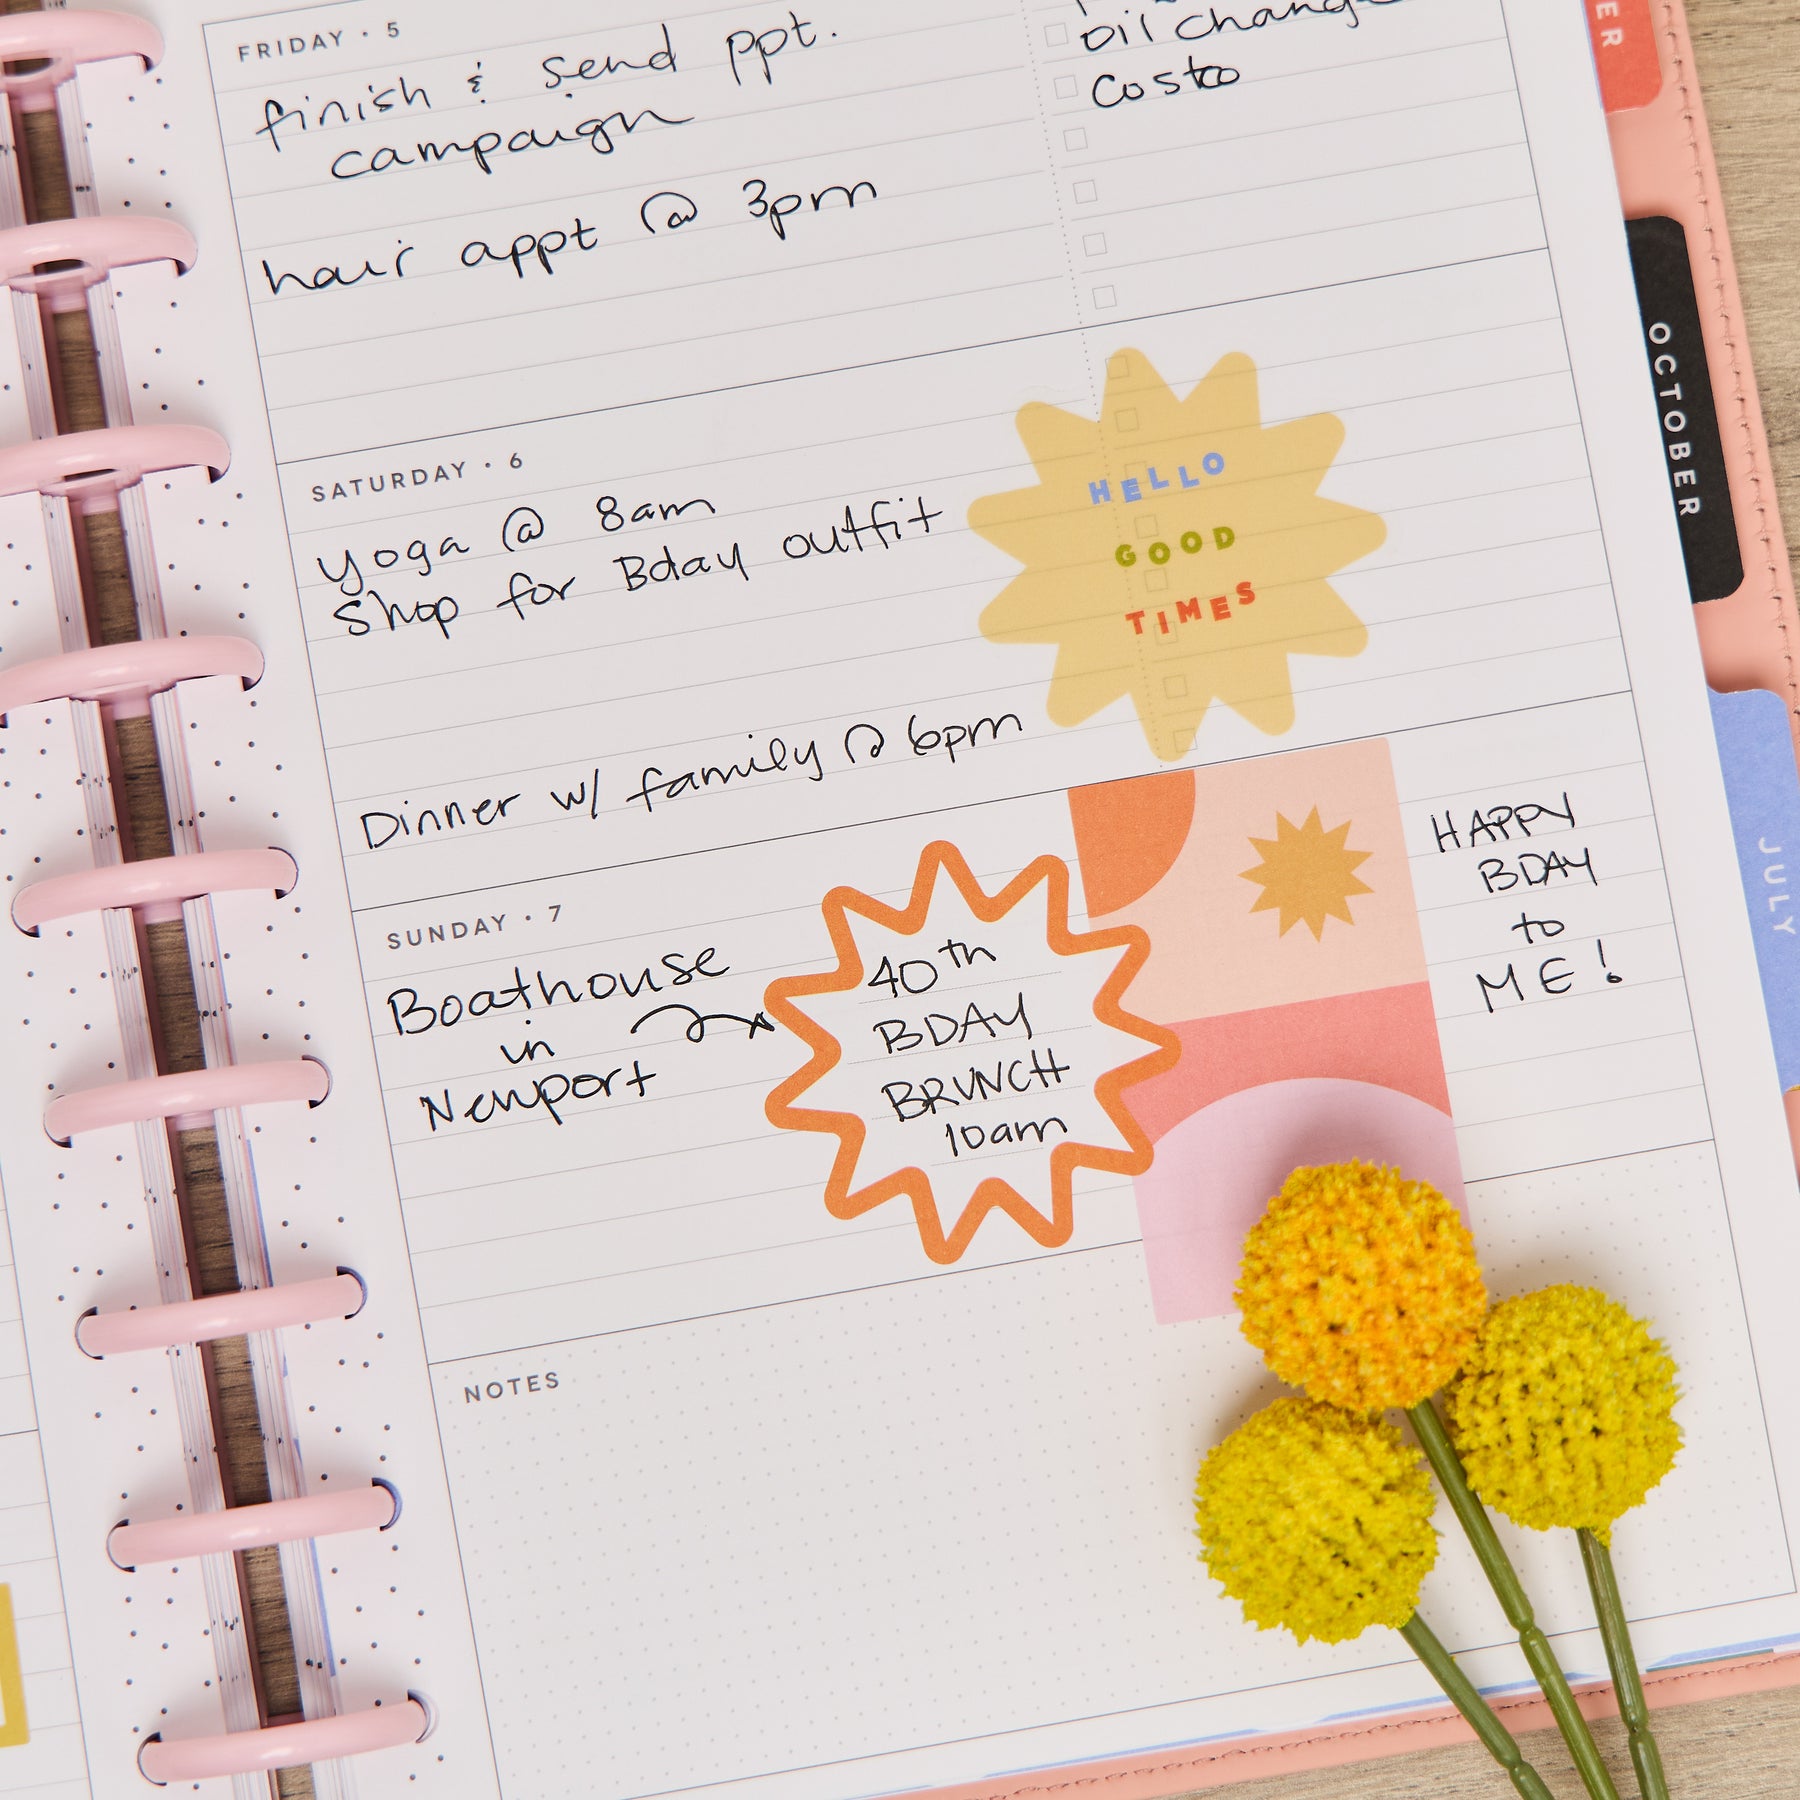 FRIDAY · 5
finish & send ppt.
campaign
hair appt @ 3pm
oil change
Costco
SATURDAY · 6
yoga @ 8am
Shop for Bday outfit
Dinner w/ family @ 6pm
HELLO
GOOD
TIMES
SUNDAY · 7
Boathouse
in
Newport
40th
BDAY
BRUNCH
10am
HAPPY
BDAY
to
ME!
NOTES
ER
OCTOBER
JULY